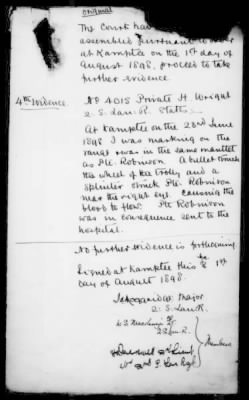 Original
The Court having
assembled pursuant to order
at Kamptee on the 1st day of
August 1898, proceed to take
further evidence.
4th Evidence. No 4015 Private H. Wright
2. S. Lan. R. States
At Kamptee on the 23rd June
1898 I was marking on the
range & was in the same mantlet
as Pte. Robinson. A bullet struck
the wheel of the trolly and a
splinter struck Pte. Robinson
near the right eye causing the
blood to flow. Pte Robinson
was in consequence sent to the
hospital.
No further evidence is forthcoming.
Signed at Kamptee this 1st
day of August 1898.
Major
2. S. Lan R.
Members